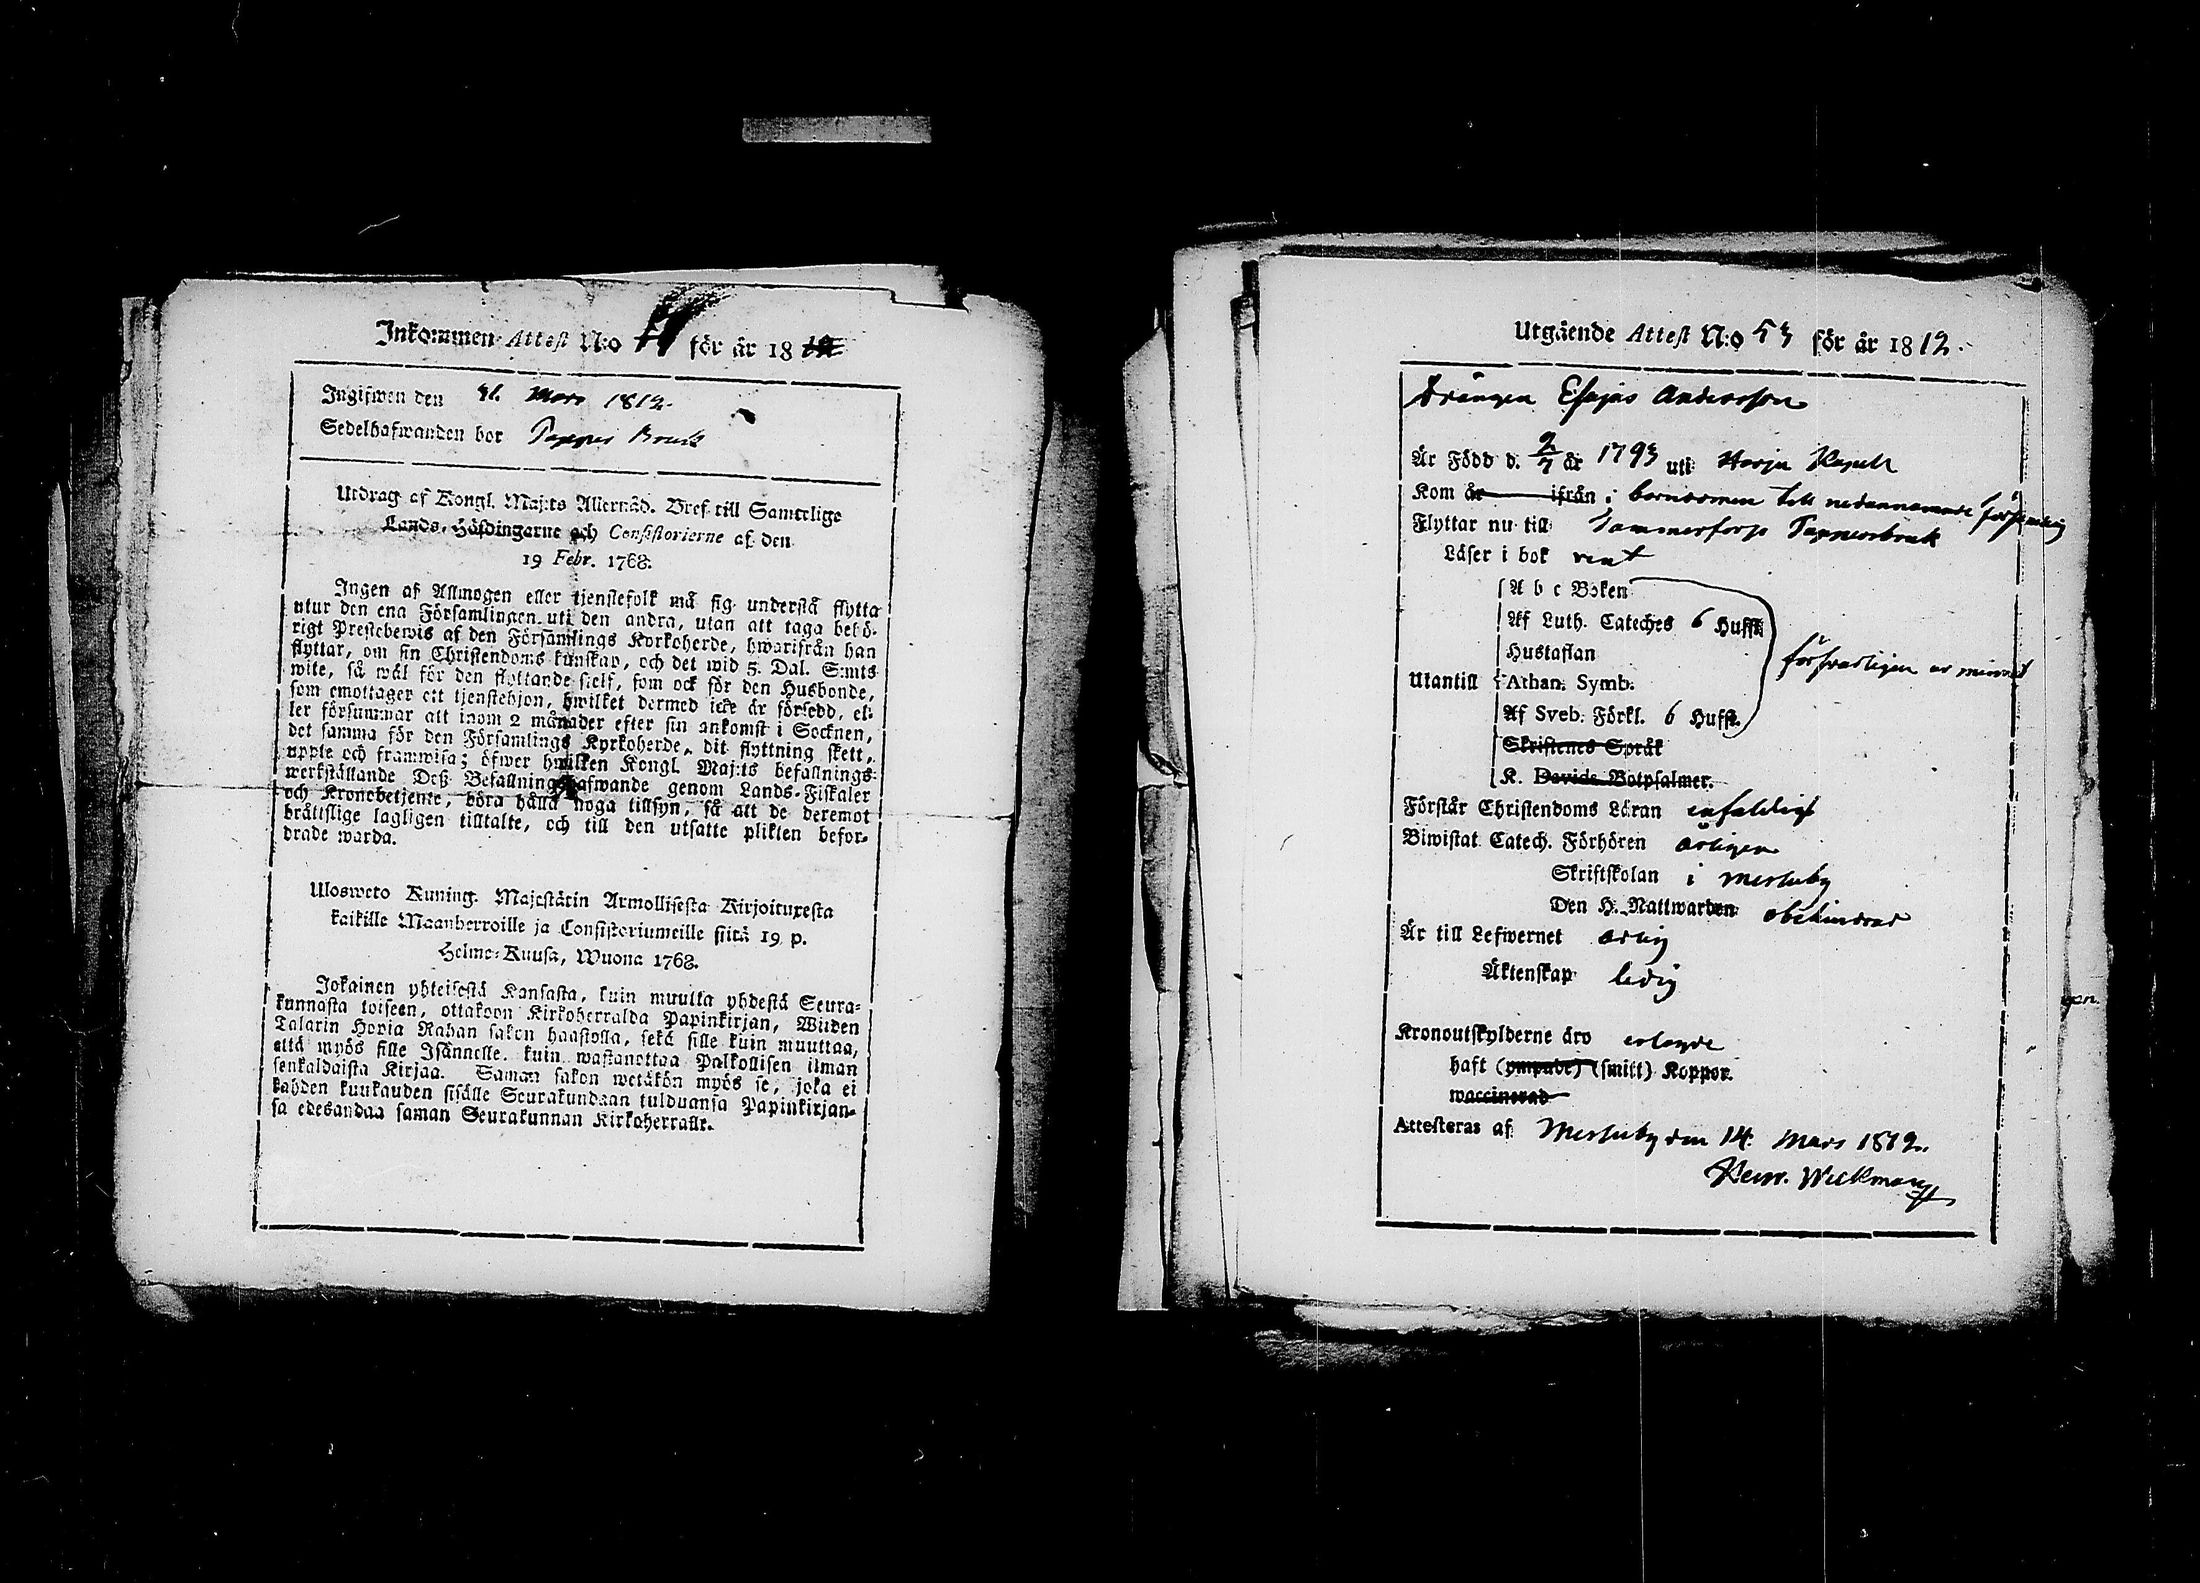 Inkommen Attest N:o för år 18
Ingifwen den 31. Mars 1812.
Sedelhafwanden bor Pappers Bruk
Utdrag af Kongl. Maj:ts Allernåd. Bref till Samtelige
Lands-Höfdingarne och Consistorierne af den
19 Febr. 1768.
Ingen af Allmogen eller tjenstefolk må sig understå flytta
utur den ena Församlingen uti den andra, utan att taga behö-
rigt Prestebewis af den Församlings Kyrkoherde, hwarifrån han
flyttar, om sin Christendoms kunskap, och det wid 5. Dal. S:mts
wite, så wäl för den flyttande sielf, som ock för den Husbonde,
som emottager ett tjenstehjon, hwilket dermed icke är försedd, el-
ler försummar att inom 2 månader efter sin ankomst i Socknen,
det samma för den Församlings Kyrkoherde, dit flyttning skett,
uppte och framwisa; öfwer hwilken Kongl. Maj:ts befallnings
werkställande Deß Befallningshafwande genom Lands-Fiskaler
och Kronobetjente, böra hålla noga tillsyn, så att de deremot
bråttslige lagligen tilltalte, och till den utsatte plikten befor-
drade warda.
Ulosweto Kuning. Majestätin Armollisesta Kirjoituxesta
kaikille Maanherroille ja Consistoriumeille siitä 19 p.
Helme-Kuusa, Wuona 1768.
Jokainen yhteisestä Kansasta, kuin muutta yhdestä Seura-
kunnasta toiseen, ottakoon Kirkoherralda Papinkirjan, Wiiden
Talarin Hopia Rahan sakon haastolla, sekä sille kuin muuttaa,
että myös sille Isännelle, kuin wastanottaa Palkollisen ilman
senkaldaista Kirjaa. Saman sakon wetäkön myös se, joka ei
kahden kuukauden sisälle Seurakundaan tulduansa Papinkirjan-
sa edesandaa saman Seurakunnan Kirkoherralle.
Utgående Attest N:o 53 för år 1812.
Drängen Esajas Andersson
Är Född d. 2/7 år 1793 uti Harju Kapell
Kom år ifrån i barndomen till nedannämnde församling
Flyttar nu till Tammerfors Pappersbruk
Läser i bok rent
A b c Boken
Af Luth. Cateches 6 Hufst.
Hustaflan
försvarligen ur minnet
Utantill Athan. Symb.
Af Sveb. Förkl. 6 Hufst.
Skriftenes Språk
K. Davids Botpsalmer.
Förstår Christendoms Läran enfaldigt
Biwistat Catech. Förhören årligen
Skriftskolan i Messuby
Den H. Nattwarden obehindrad
Är till Lefwernet ärlig
Äktenskap ledig
Kronoutskylderne äro erlagde
haft (ympade) (smitt) Koppor.
waccinerad
Attesteras af Messuby den 14 Mars 1812.
Henr. Wickman